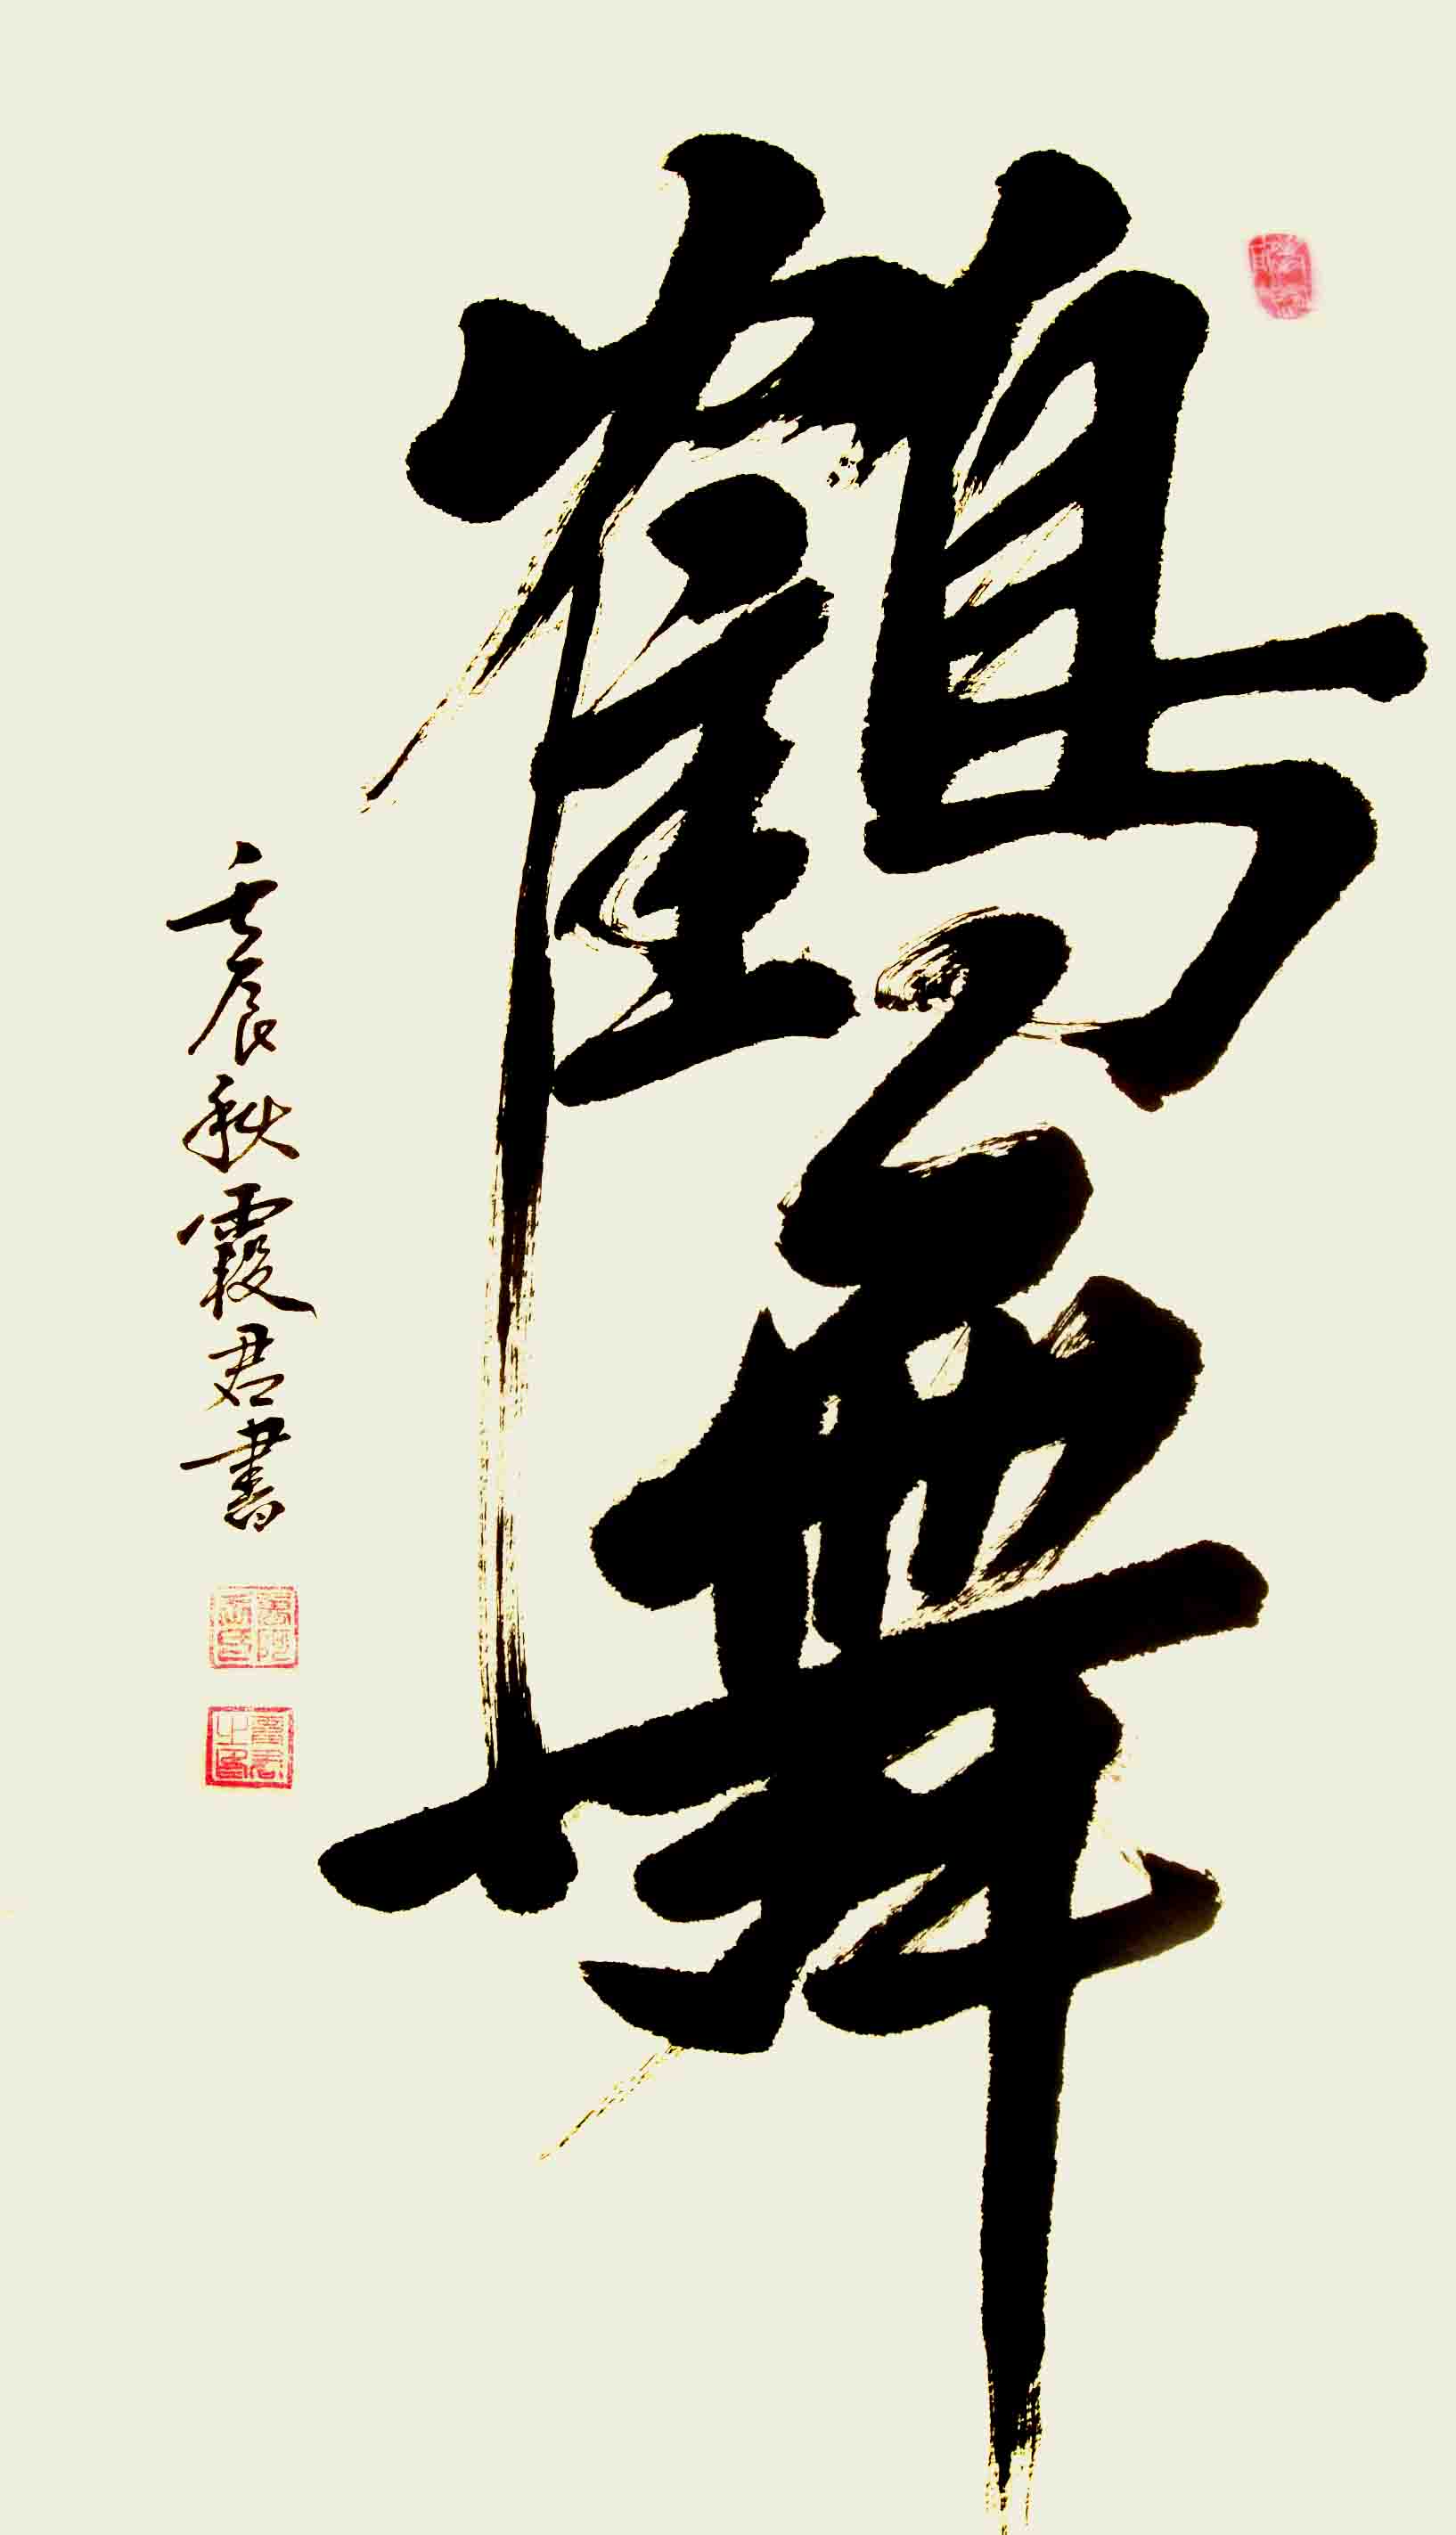 鶴舞
壬辰秋霞君書